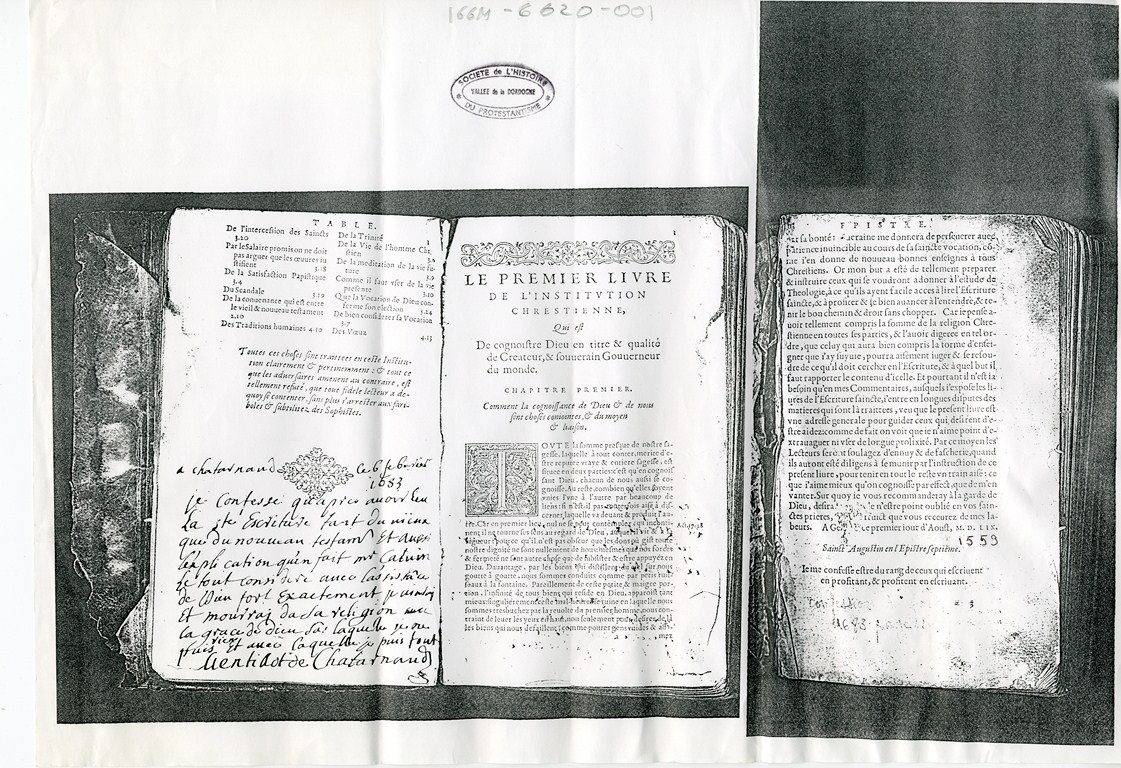 166M-6620-001
SOCIETE de L'HISTOIRE
VALLEE de la DORDOGNE
DU PROTESTANTISME
TABLE.
De l'intercession des Saincts
3.20
Par le Salaire promis on ne doit
pas arguer que les œuures iu
stifient 3.18
De la Satisfaction Papistique
3.4
Du Scandale 3.19
De la conuenance qui est entre
le vieil & nouueau testament
2.10
Des Traditions humaines 4.10
De la Trinité 1
De la Vie de l'homme Chre
stien 3.6
De la meditation de la vie fu-
ture 3.9
Comme il faut vser de la vie
presente 3.10
Que la Vocation de Dieu con-
ferme son election 3.24
De bien considerer sa Vocation
3.7
Des Vœuz 4.13
Toutes ces choses sont traittees en ceste Institu-
tion clairement & pertinemment : & tout ce
que les aduersaires amenent au contraire, est
tellement refuté, que tout fidele lecteur a de-
quoy se contenter, sans plus s'arrester aux fari-
boles & subtilitez des Sophistes.
a chatarnaud ce 6 febvrier
1683
Je Confesse qu'apres avoir leu
La ste Escriture
que du nouveau testamt Et aussi
lexplication qu'en fait mr Calvin
le tout considere avec lassistance
de Dieu fort Exactement
et mourray da sa religion avec
la grace de dieu sas laquelle je ne
puis rien et avec laquelle je puis tout
de Chatarnaud
1
LE PREMIER LIVRE
DE L'INSTITVTION
CHRESTIENNE,
Qui est
De cognoistre Dieu en titre & qualité
de Createur, & souuerain Gouuerneur
du monde.
CHAPITRE PREMIER.
Comment la cognoissance de Dieu & de nous
sont choses coniointes, & du moyen
de ceste liaison.
TOVTE la somme presque de nostre sa-
gesse, laquelle à tout conter, merite d'e-
stre reputee vraye & entiere sagesse, est
située en deux parties: c'est qu'en cognois
sant Dieu, chacun de nous aussi se co-
gnoisse. Au reste, combien qu'elles soyent
vnies l'vne à l'autre par beaucoup de
liens: si n'est-il pas
cerner, laquelle va deuant & produit l'au-
tre. Car en premier lieu, nul ne se peut contempler, qu'inconti-
nent il ne tourne ses sens au regard de Dieu, auquel il vit & a sa
vigueur: pource qu'il n'est pas obscur que les dons où gist toute
nostre dignité ne sont nullement de nous mesmes: que nos forces
& fermeté ne sont autre chose que de subsister & estre appuyez en
Dieu. Dauantage, par les biens qui distillent du ciel sur nous
goutte à goutte, nous sommes conduits comme par petis ruis-
seaux à la fontaine. Pareillement de ceste petite & maigre por-
tion, l'infinité de tous biens qui reside en Dieu, apparoist tant
mieux: singulierement ceste malheureuse ruine en laquelle nous
sommes tresbuchez par la reuolte du premier homme, nous con-
traint de leuer les yeux en haut, non seulement pour desirer de là
les biens qui nous defaillent, comme poures gens vuides & af-
Act. 17.28
EPISTRE.
par sa bonté: & encore me donnera de perseuerer auec
patience inuincible au cours de sa saincte vocation, cō-
me i'en donne de nouueau bonnes enseignes à tous
Chrestiens. Or mon but a esté de tellement preparer
& instruire ceux qui se voudront adonner à l'estude de
Theologie, à ce qu'ils ayent facile acces à lire l'Escriture
saincte, & à profiter & se bien auancer à l'entendre, & te-
nir le bon chemin & droit sans chopper. Car ie pense a-
uoir tellement compris la somme de la religion Chre-
stienne en toutes ses parties, & l'auoir digeree en tel or-
dre, que celuy qui aura bien compris la forme d'ensei-
gner que i'ay suyuie, pourra aisément iuger & se resou-
dre de ce qu'il doit cercher en l'Escriture, & à quel but il
faut rapporter le contenu d'icelle. Et pourtant il n'est ia
besoin qu'en mes Commentaires, ausquels i'expose les li-
ures de l'Escriture saincte, i'entre en longues disputes des
matieres qui sont là traittees, veu que le present liure est
vne adresse generale pour guider ceux qui desirent d'e-
stre aidez: comme de fait on voit que ie n'aime point d'e-
xtrauaguer ni vser de longue prolixité. Par ce moyen les
Lecteurs serōt soulagez d'ennuy & de fascherie, quand
ils auront esté diligens à se munir par l'instruction de ce
present liure, pour tenir tout le reste en train aisé: ce
que i'aime mieux qu'on cognoisse par effect, que de m'en
vanter. Sur quoy ie vous recommanderay à la garde de
Dieu, desirant n'estre point oublié en vos sain-
ctes prieres, fruict que vous receurez de mes la-
beurs. A Ge ce premier iour d'Aoust, M. D. LIX.
1559
Sainct Augustin en l'Epistre septieme.
Ie me confesse estre du rang de ceux qui escriuent
en profitant, & profitent en escriuant.
* 3
1683